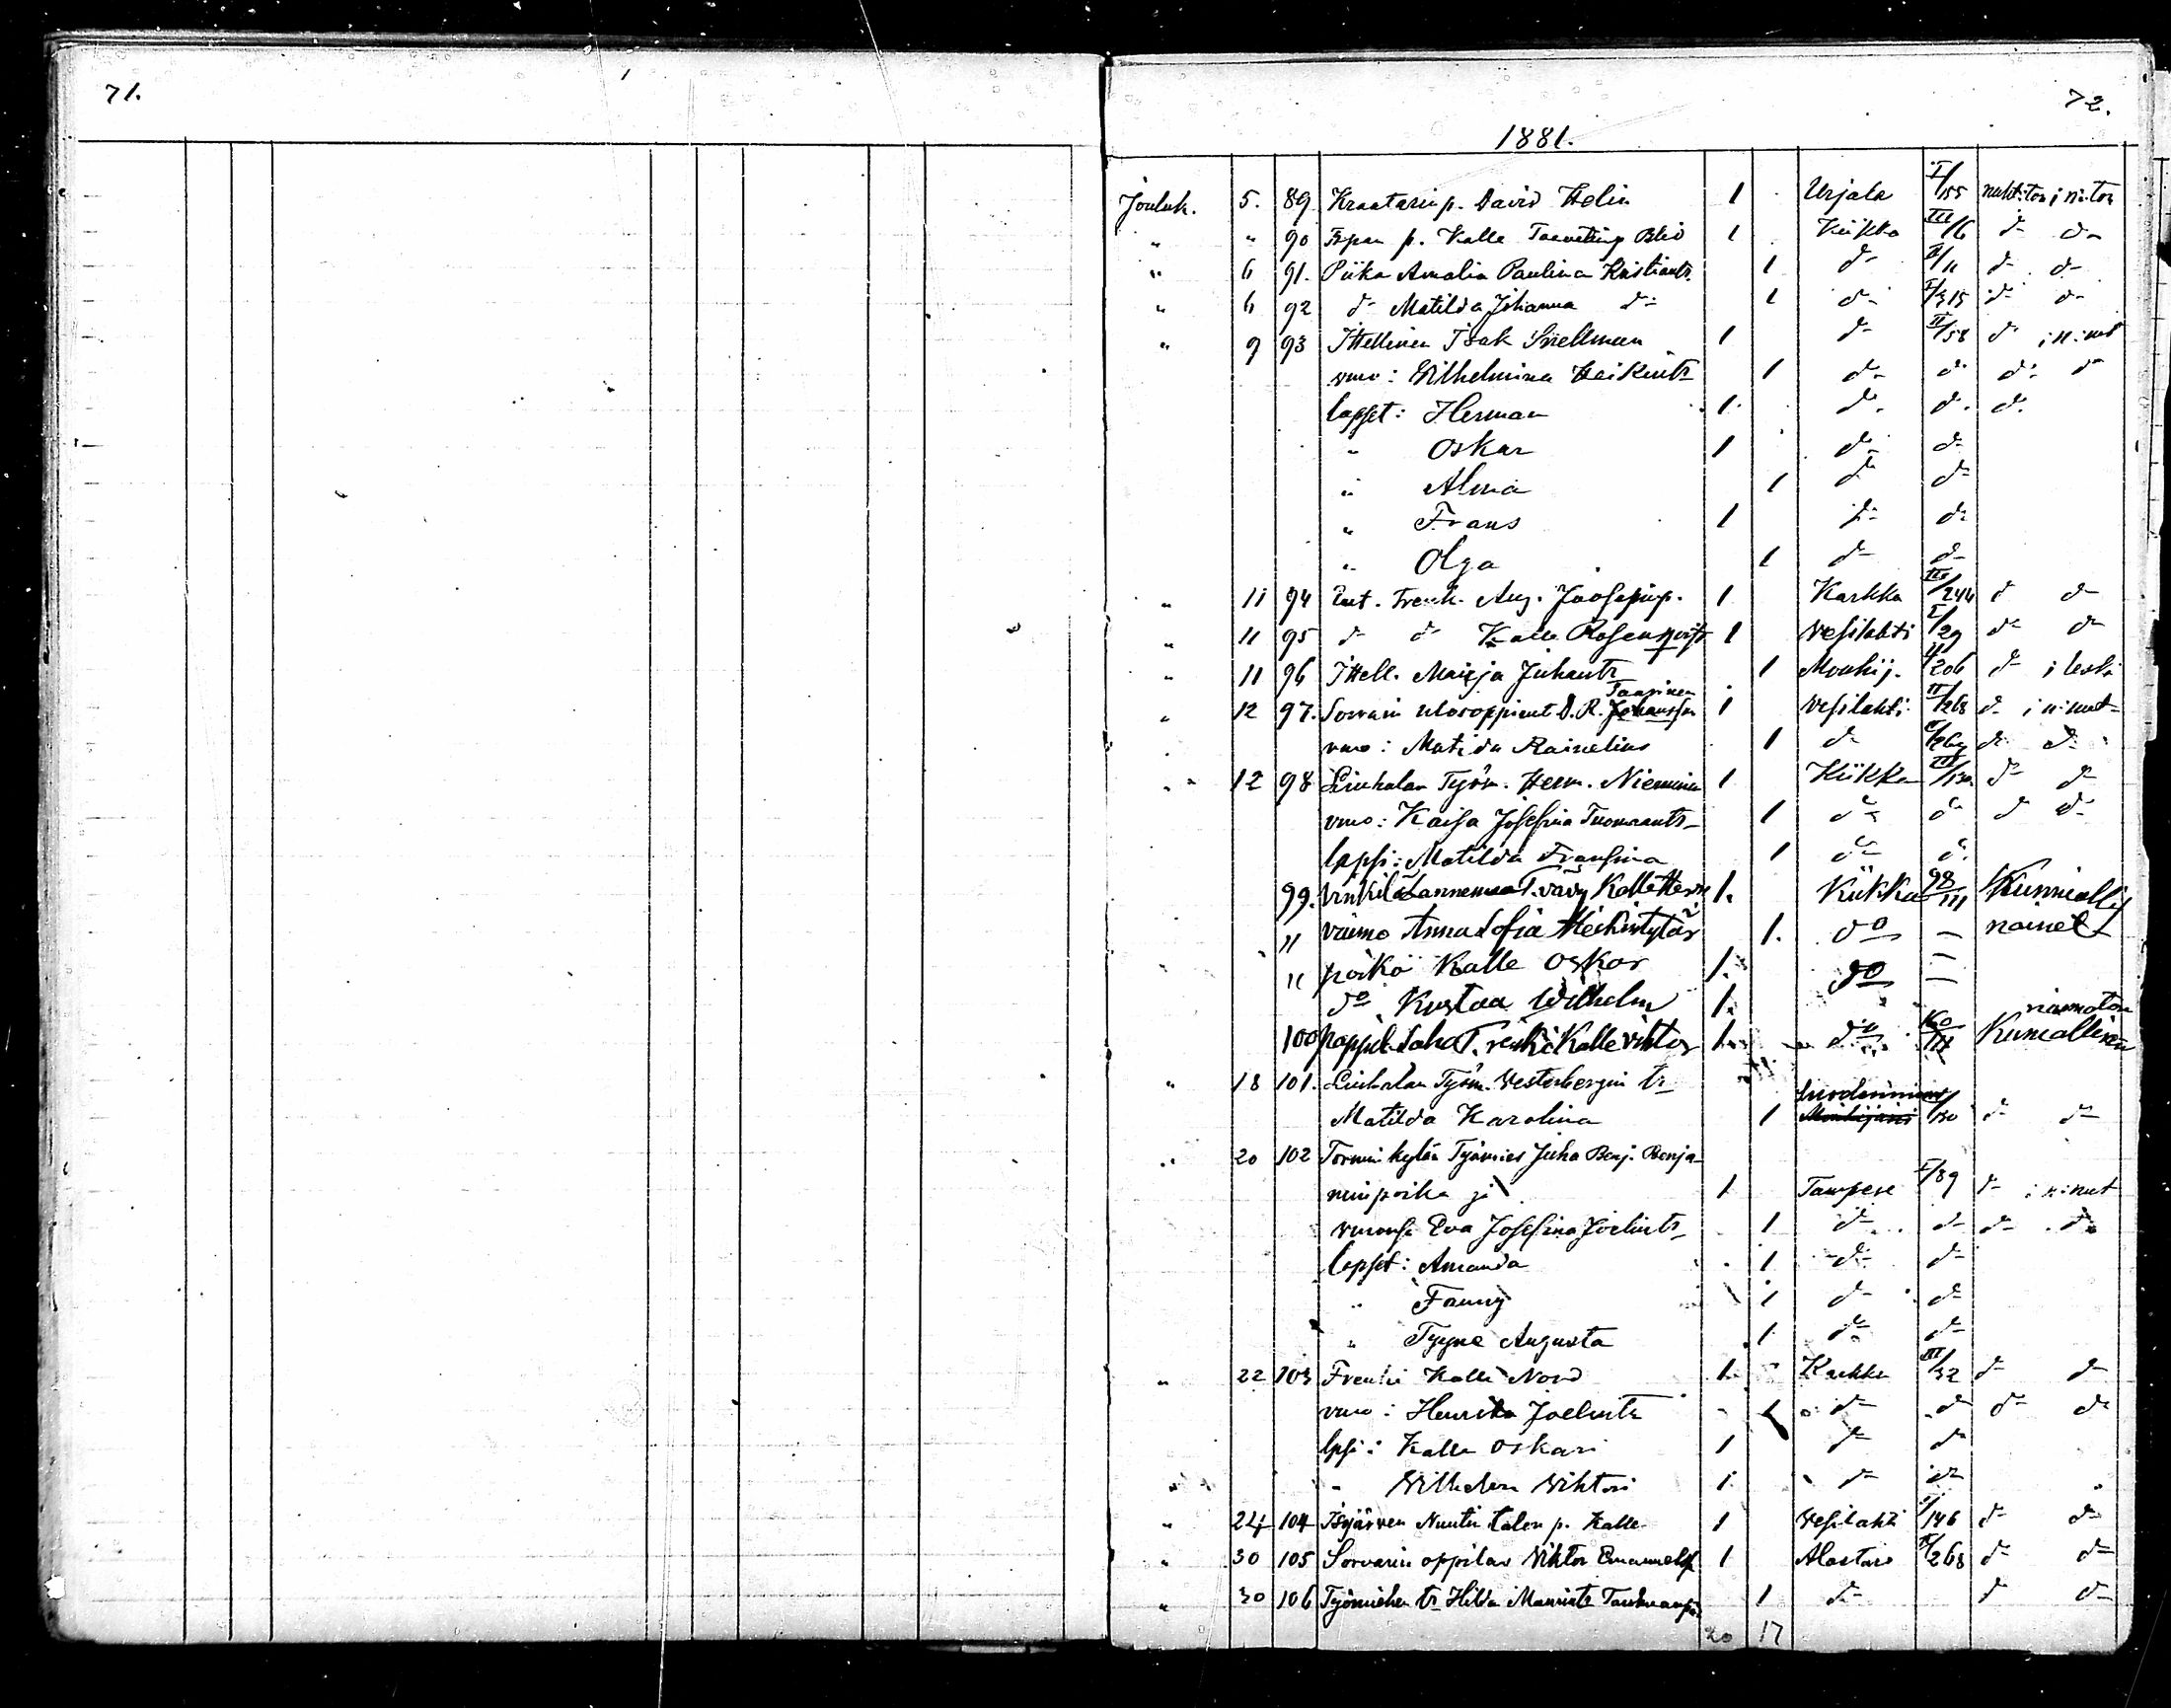 71.
72.
1881.
Jouluk. 5. 89 Kraatarin p. David Helin 1 Urjala I/155 nuht:ton i n:ton
" " 90 p. Kalle 1 Kiikka III/6 d- d-
" 6 91. Piika Amalia Paulina Kristiants. 1 d- II/11 d- d-
" 6 92 d- Matilda Johanna d- 1 d- I/315 d- d-
" 9 93 Ittellinen Isak Snellman 1 d- II/58 d- i n:nut
vmo: Wilhelmina Heikints 1 d- d- d- d-
lapset: Herman 1 d- d- d-
" Oskar 1 d- d-
" Alma 1 d- d-
" Frans 1 d- d-
" Olga 1 d- d-
" 11 94 Ent. Trenk. Aug. Joosepinp. 1 Karkku III/244 d- d-
" 11 95 d- d- Kalle Rosenqvist 1 Vesilahti I/29 d- d-
" 11 96 Ittell. Maija Juhants 1 Mouhij. II/206 d- i leski
" 12 97. Sorvarin D. R. Johansson 1 Vesilahti II/268 d- i n:nut
vmo: Matilda Rainelius 1 d- d- d-
" 12 98 Liuhalan Työm. Herm. Nieminen 1 Kiikka III/130 d- d-
vmo: Kaisa Josefina Tuomaants 1 d- d- d- d-
lapsi: Matilda Fransina 1 d- d-
99. T. vävy Kalle Herm 1. Kiikka 98/III Kunniallis
" vaimo Anna Sofia Heikintytär 1. do — nainet
" poika Kalle Oskar 1. do —
do Kustaa Wilhelm 1.
naimaton
100 T. renki Kalle Viktor 1. do 60/III Kunniallinen
" 18 101. Liuhalan Työm. Westerbergin tr
Matilda Karolina 1 Mouhijärvi /130 d- d-
" 20 102 Tormin kylän Työmies Juha Benj. Benja-
minpoika ja 1 Tampere I/89 d- i n:nut
vmonsa Eva Josefina Joelints 1 d- d- d- d-
lapset: Amanda 1 d- d-
" Fanny 1 d- d-
" Tyyne Augusta 1 d- d-
" 22 103 Trenki Kalle Nord 1 Karkku III/32 d- d-
vmo: Henrika Joelints 1 d- d- d- d-
lpsi: Kalle Oskari 1 d- d-
" " Wilhelm Wihtori 1 d- d-
" 24 104 Isojärven Nuutin talon p. Kalle 1 Vesilahti I/146 d- d-
" 30 105 Sorvarin oppilas Viktor Emanuelsp. 1 Alastaro II/268 d- d-
" 30 106 Työmiehen tr Hilda Maurints 1 d- d- d-
20 17